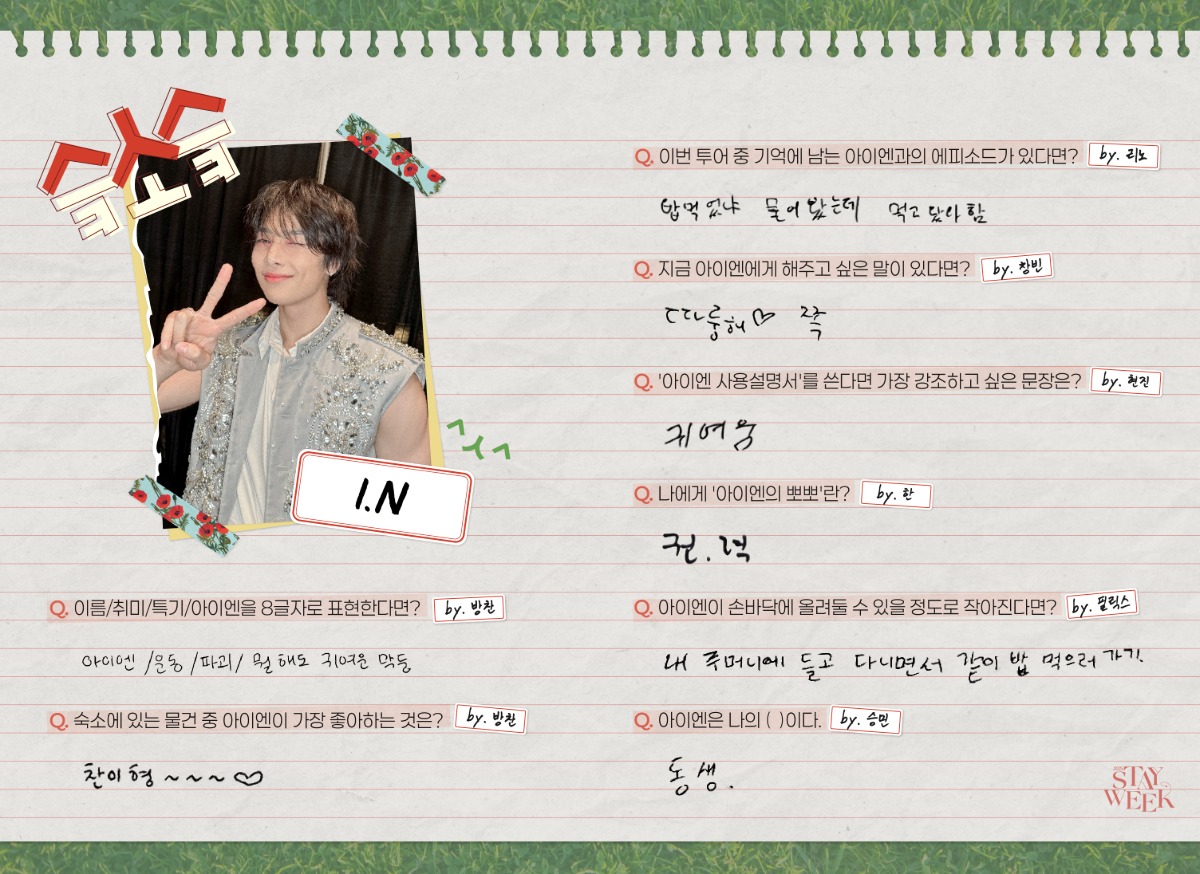 ㅅㅅㅅ
ㅋㅗㅋ
I.N
ㅅㅅㅅ
Q. 이름/취미/특기/아이엔을 8글자로 표현한다면? by. 방찬
아이엔 /운동 /파괴/ 뭘 해도 귀여운 막둥
Q. 숙소에 있는 물건 중 아이엔이 가장 좋아하는 것은? by. 방찬
찬이형 ~ ~ ~ ~ ♡
Q. 이번 투어 중 기억에 남는 아이엔과의 에피소드가 있다면? by. 리노
밥먹었냐 물어봤는데 먹고 닮아함
Q. 지금 아이엔에게 해주고 싶은 말이 있다면? by. 창빈
따룽해♡ 쪽
Q. '아이엔 사용설명서'를 쓴다면 가장 강조하고 싶은 문장은? by. 현진
귀여움
Q. 나에게 '아이엔의 뽀뽀'란? by. 한
권.력
Q. 아이엔이 손바닥에 올려둘 수 있을 정도로 작아진다면? by. 필릭스
내 주머니에 들고 다니면서 같이 밥 먹으러 가기.
Q. 아이엔은 나의 ( )이다. by. 승민
동생.
STAY
WEEK